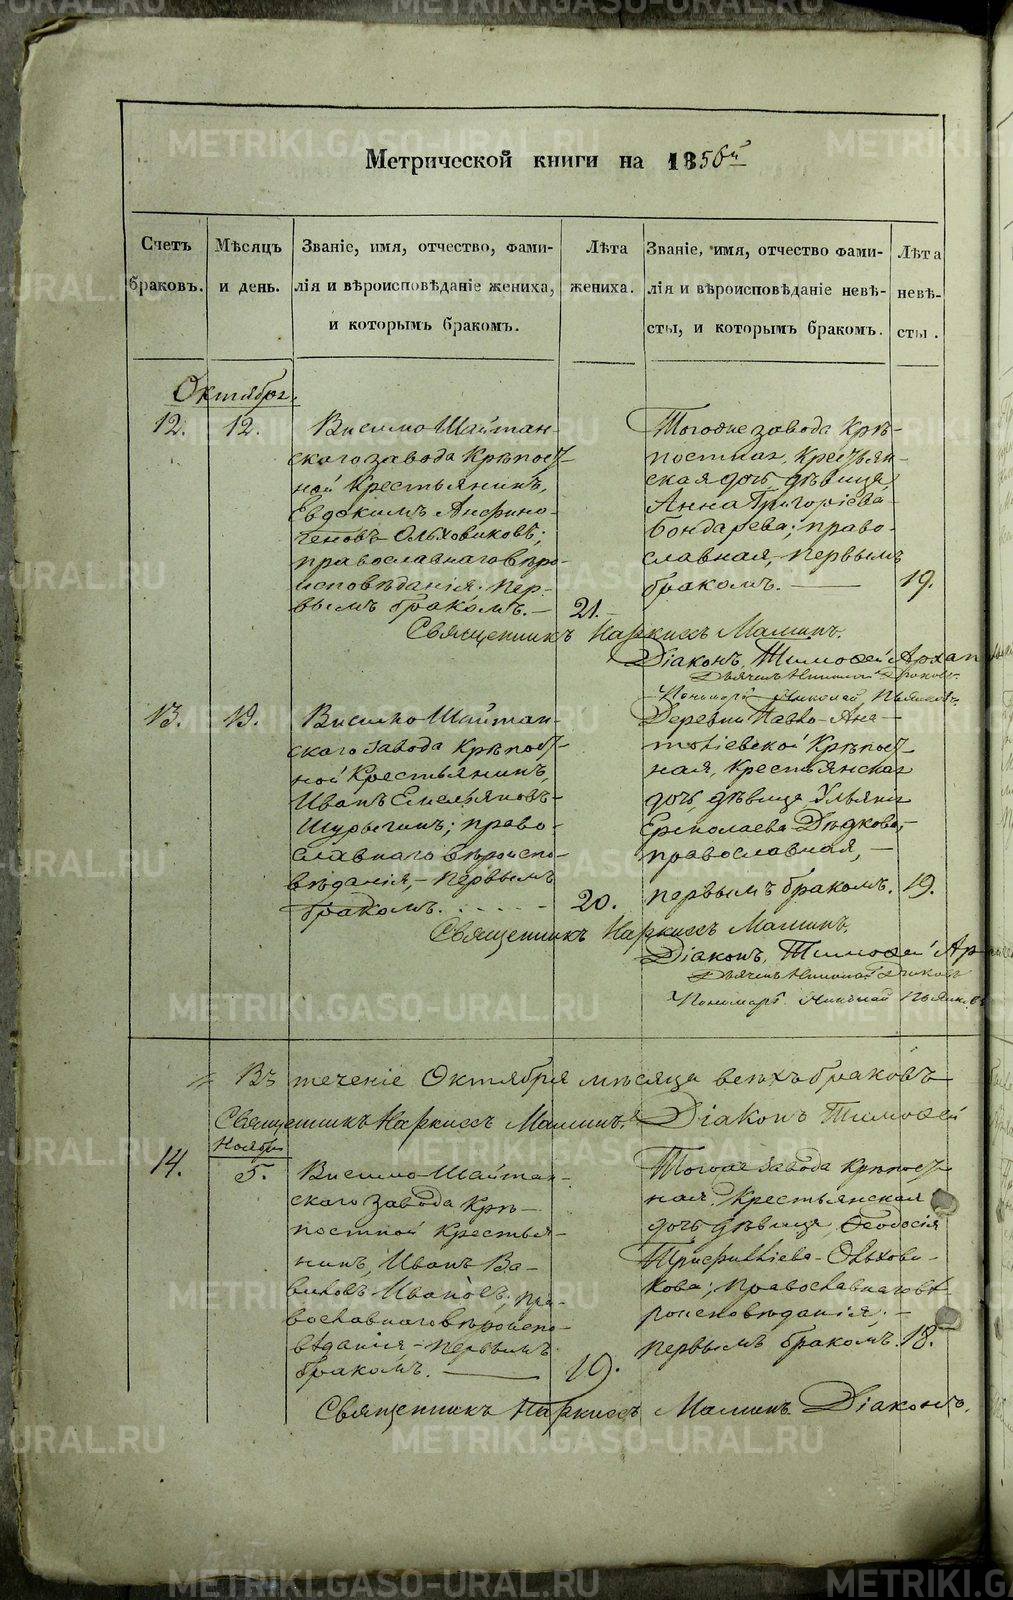 Метрической книги на 1856й
Счетъ браковъ.
Мѣсяцъ и день.
Званіе, имя, отчество, фами-
лія и вѣроисповѣданіе жениха,
и которымъ бракомъ.
Лѣта жениха.
Званіе, имя, отчество фами-
лія и вѣроисповѣданіе невѣ-
сты, и которымъ бракомъ.
Лѣта невѣ-
сты.
Октября.
12. 12.
Висимо Шайтан-
скаго завода Крѣпост-
ной Крестьянинъ,
Евдокимъ Анфино-
геновъ Ольховиковъ;
православнаго вѣро-
исповѣданія; пер-
вымъ бракомъ. —
21.
Тогоже завода Крѣ-
постная, Крестьян-
ская дочь, дѣвица,
Анна Григоріева
Бондарева; право-
славная, первымъ
бракомъ. —
19.
Священникъ Наркиссъ Маминъ.
Діаконъ, Тимоѳей Архан
Пономарь Николай
13. 19.
Висимо Шайтан-
скаго завода Крѣпост-
ной Крестьянинъ,
Иванъ Емельяновъ
Шурыгинъ; право-
славнаго вѣроиспо-
вѣданія, – первымъ
бракомъ.
20.
Деревни Павло-Ана-
толіевской Крѣпост-
ная, Крестьянская
дочь, дѣвица Ульянія
Ермолаева Дѣдкова,
православная, –
первымъ бракомъ.
19.
Священникъ Наркиссъ Маминъ.
Діаконъ, Тимоѳей Ар
Пономарь Николай
Въ теченіе Октября мѣсяца всѣхъ браковъ
Священникъ Наркиссъ Маминъ. Діаконъ Тимоѳей
Ноября
14. 5.
Висимо Шайтан-
скаго завода Крѣ-
постной Крестья-
нинъ, Иванъ Ва-
виловъ Ивановъ; пра-
вославнаго вѣроиспо-
вѣданія – первымъ
бракомъ. —
19.
Тогоже завода Крѣпост-
ная, Крестьянская
дочь, дѣвица, Ѳеодосія
Трифиліева Ольхови-
кова; Православнаго вѣ-
роисповѣданія. –
первымъ бракомъ.
18.
Священникъ Наркиссъ Маминъ. Діаконъ,
METRIKI.GASO-URAL.RU